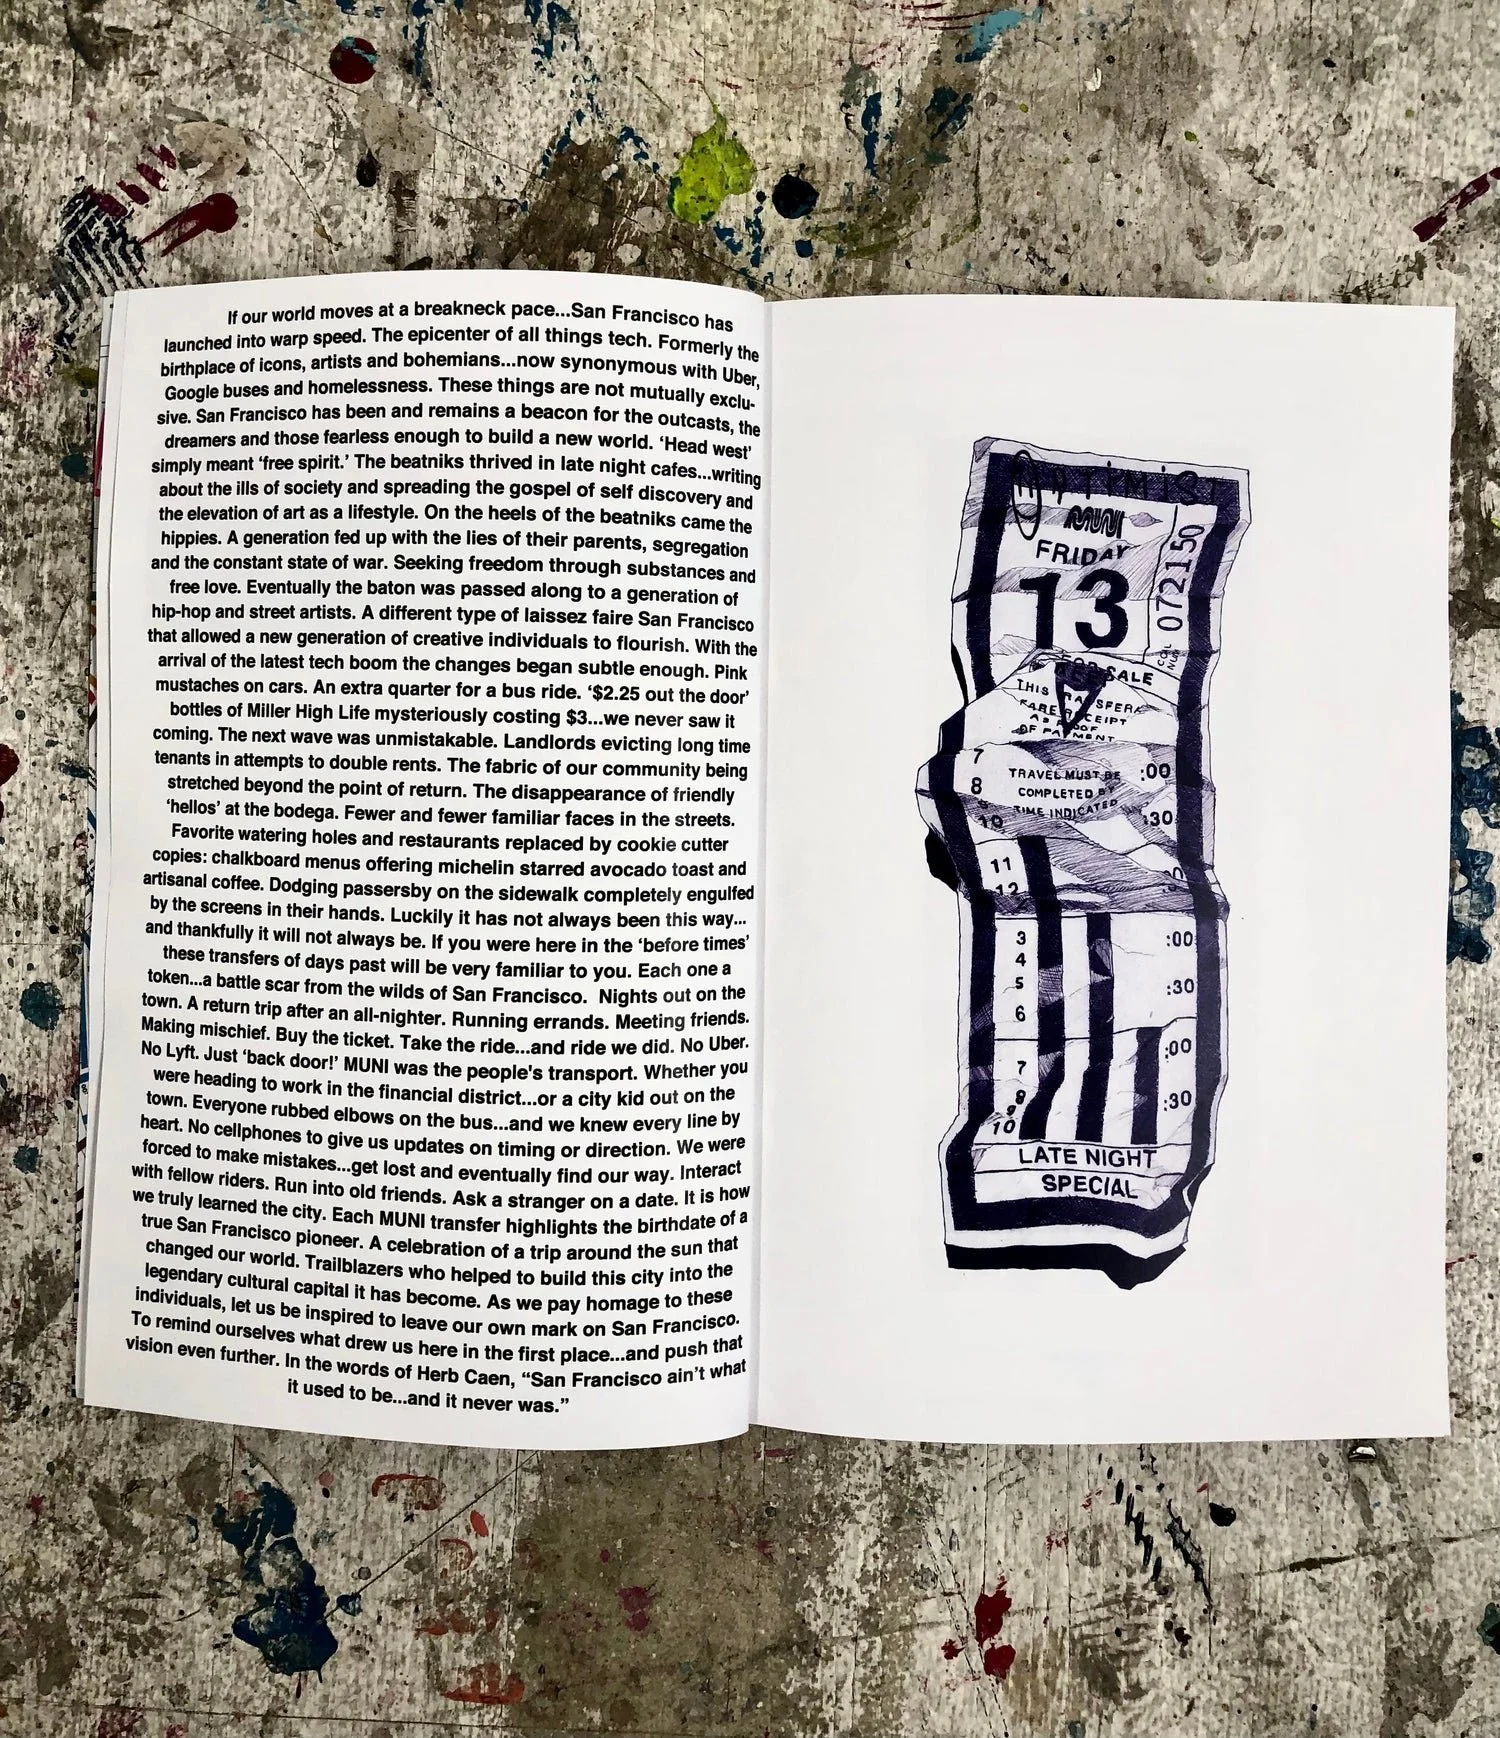 If our world moves at a breakneck pace...San Francisco has
launched into warp speed. The epicenter of all things tech. Formerly the
birthplace of icons, artists and bohemians...now synonymous with Uber,
Google buses and homelessness. These things are not mutually exclu-
sive. San Francisco has been and remains a beacon for the outcasts, the
dreamers and those fearless enough to build a new world. ‘Head west’
simply meant ‘free spirit.’ The beatniks thrived in late night cafes...writing
about the ills of society and spreading the gospel of self discovery and
the elevation of art as a lifestyle. On the heels of the beatniks came the
hippies. A generation fed up with the lies of their parents, segregation
and the constant state of war. Seeking freedom through substances and
free love. Eventually the baton was passed along to a generation of
hip-hop and street artists. A different type of laissez faire San Francisco
that allowed a new generation of creative individuals to flourish. With the
arrival of the latest tech boom the changes began subtle enough. Pink
mustaches on cars. An extra quarter for a bus ride. ‘$2.25 out the door’
bottles of Miller High Life mysteriously costing $3...we never saw it
coming. The next wave was unmistakable. Landlords evicting long time
tenants in attempts to double rents. The fabric of our community being
stretched beyond the point of return. The disappearance of friendly
‘hellos’ at the bodega. Fewer and fewer familiar faces in the streets.
Favorite watering holes and restaurants replaced by cookie cutter
copies: chalkboard menus offering michelin starred avocado toast and
artisanal coffee. Dodging passersby on the sidewalk completely engulfed
by the screens in their hands. Luckily it has not always been this way...
and thankfully it will not always be. If you were here in the ‘before times’
these transfers of days past will be very familiar to you. Each one a
token...a battle scar from the wilds of San Francisco.  Nights out on the
town. A return trip after an all-nighter. Running errands. Meeting friends.
Making mischief. Buy the ticket. Take the ride...and ride we did. No Uber.
No Lyft. Just ‘back door!’ MUNI was the people's transport. Whether you
were heading to work in the financial district...or a city kid out on the
town. Everyone rubbed elbows on the bus...and we knew every line by
heart. No cellphones to give us updates on timing or direction. We were
forced to make mistakes...get lost and eventually find our way. Interact
with fellow riders. Run into old friends. Ask a stranger on a date. It is how
we truly learned the city. Each MUNI transfer highlights the birthdate of a
true San Francisco pioneer. A celebration of a trip around the sun that
changed our world. Trailblazers who helped to build this city into the
legendary cultural capital it has become. As we pay homage to these
individuals, let us be inspired to leave our own mark on San Francisco.
To remind ourselves what drew us here in the first place...and push that
vision even further. In the words of Herb Caen, “San Francisco ain’t what
it used to be...and it never was.”
MUNI
FRIDAY
13
072150
SALE
THIS
FARE RECEIPT
OF PAYMENT
7 TRAVEL MUST BE :00
8 COMPLETED BY
9 TIME INDICATED :30
10
11
12
3 :00
4
5 :30
6
:00
7
8 :30
9
10
LATE NIGHT
SPECIAL